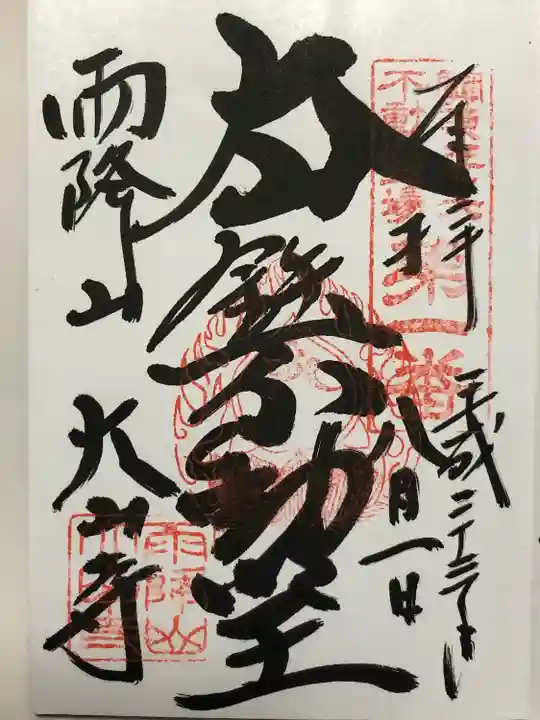 奉拝
平成二十三年
八月一日
不動霊場
第一番
不動
雨降山
大山寺
雨降山
大山寺